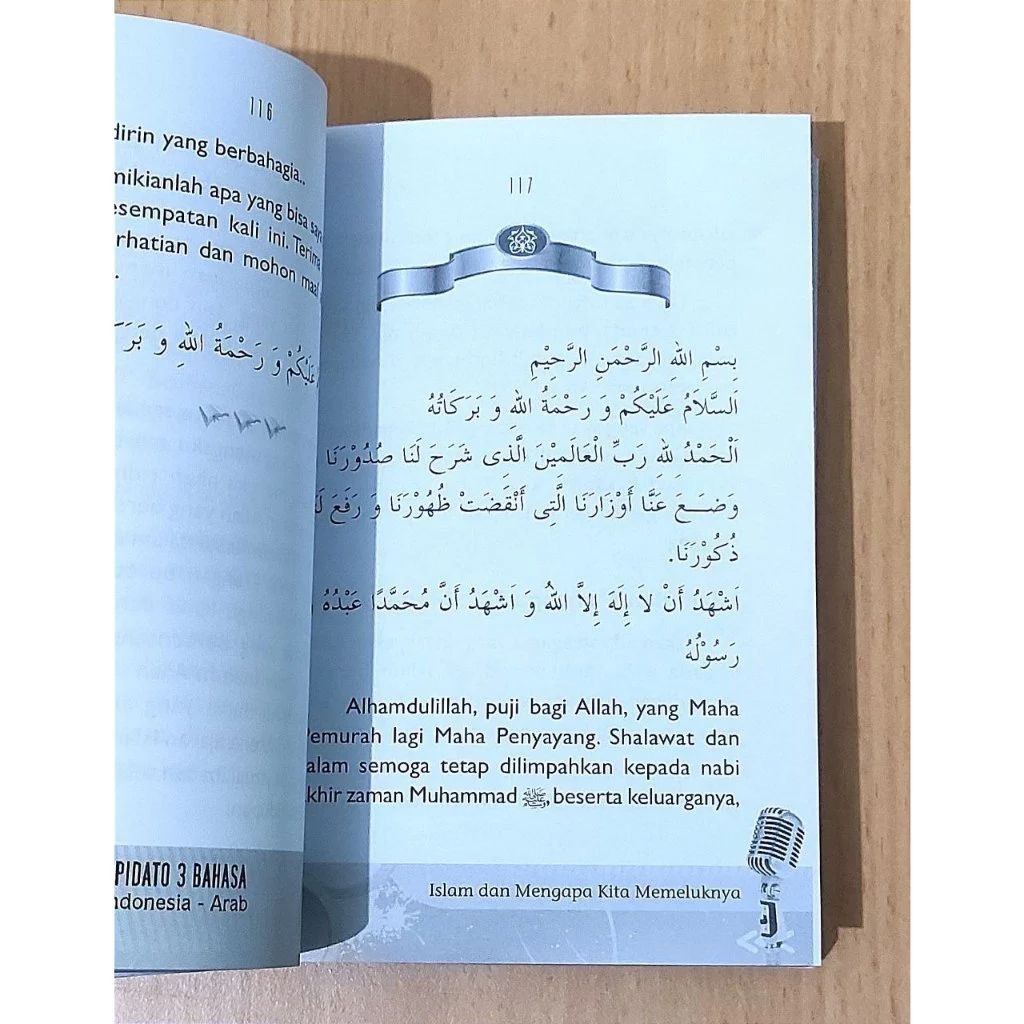 116
yang berbahagia..
apa yang bisa
kali ini. Terima
dan mohon maaf
عَلَيْكُمْ وَ رَحْمَةُ اللهِ وَ
PIDATO 3 BAHASA
- Arab
117
بِسْمِ اللهِ الرَّحْمَنِ الرَّحِيْمِ
اَلسَّلَامُ عَلَيْكُمْ وَ رَحْمَةُ اللهِ وَ بَرَكَاتُهُ
اَلْحَمْدُ لِلهِ رَبِّ الْعَالَمِيْنَ الَّذِى شَرَحَ لَنَا صُدُوْرَنَا
وَضَـــعَ عَنَّا أَوْزَارَنَا الَّتِى أَنْقَضَتْ ظُهُوْرَنَا وَ رَفَعَ
ذُكُوْرَنَا.
اَشْهَدُ أَنْ لاَ إِلَهَ إِلاَّ اللهُ وَ اَشْهَدُ أَنَّ مُحَمَّدًا عَبْدُهُ
رَسُوْلُهُ
Alhamdulillah, puji bagi Allah, yang Maha
Pemurah lagi Maha Penyayang. Shalawat dan
semoga tetap dilimpahkan kepada nabi
zaman Muhammad ﷺ, beserta keluarganya,
Islam dan Mengapa Kita Memeluknya